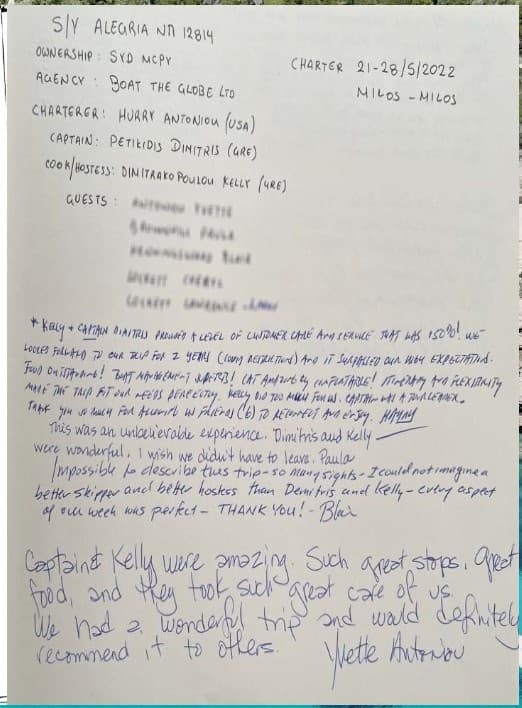 S/Y ALEGRIA NΠ 12814
OWNERSHIP: SYD MCPY
AGENCY: BOAT THE GLOBE LTD
CHARTERER: HURRY ANTONIOU (USA)
CAPTAIN: PETIKIDIS DIMITRIS (GRE)
COOK/HOSTESS: DINITRAKOPOULOU KELLY (GRE)
GUESTS:
CHARTER 21-28/5/2022
MILOS - MILOS
* KELLY + CAPTAIN DIMITRIS PROVIDED A LEVEL OF CUSTOMER CARE AND SERVICE THAT WAS 150%! WE
LOOKED FORWARD TO OUR TRIP FOR 2 YEARS (COVID RESTRICTIONS) AND IT SURPASSED OUR HIGH EXPECTATIONS.
FOOD OUTSTANDING! BOAT MANAGEMENT SUPERB! CAT COMFORTABLE! ITINERARY AND FLEXIBILITY
MADE THE TRIP FIT OUR NEEDS PERFECTLY. KELLY DID TOO MUCH FOR US. CAPTAIN WAS A TOUR LEADER.
THANK YOU SO MUCH FOR ALLOWING US FRIENDS (6) TO RECONNECT AND ENJOY.
This was an unbelievable experience. Dimitris and Kelly
were wonderful, I wish we didn't have to leave. Paula
Impossible to describe this trip - so many sights - I could not imagine a
better skipper and better hostess than Demitris and Kelly - every aspect
of our week was perfect - THANK YOU! - Blair
Captain & Kelly were amazing. Such great stops, great
food, and they took such great care of us.
We had a wonderful trip and would definitely
recommend it to others. Yvette Antoniou